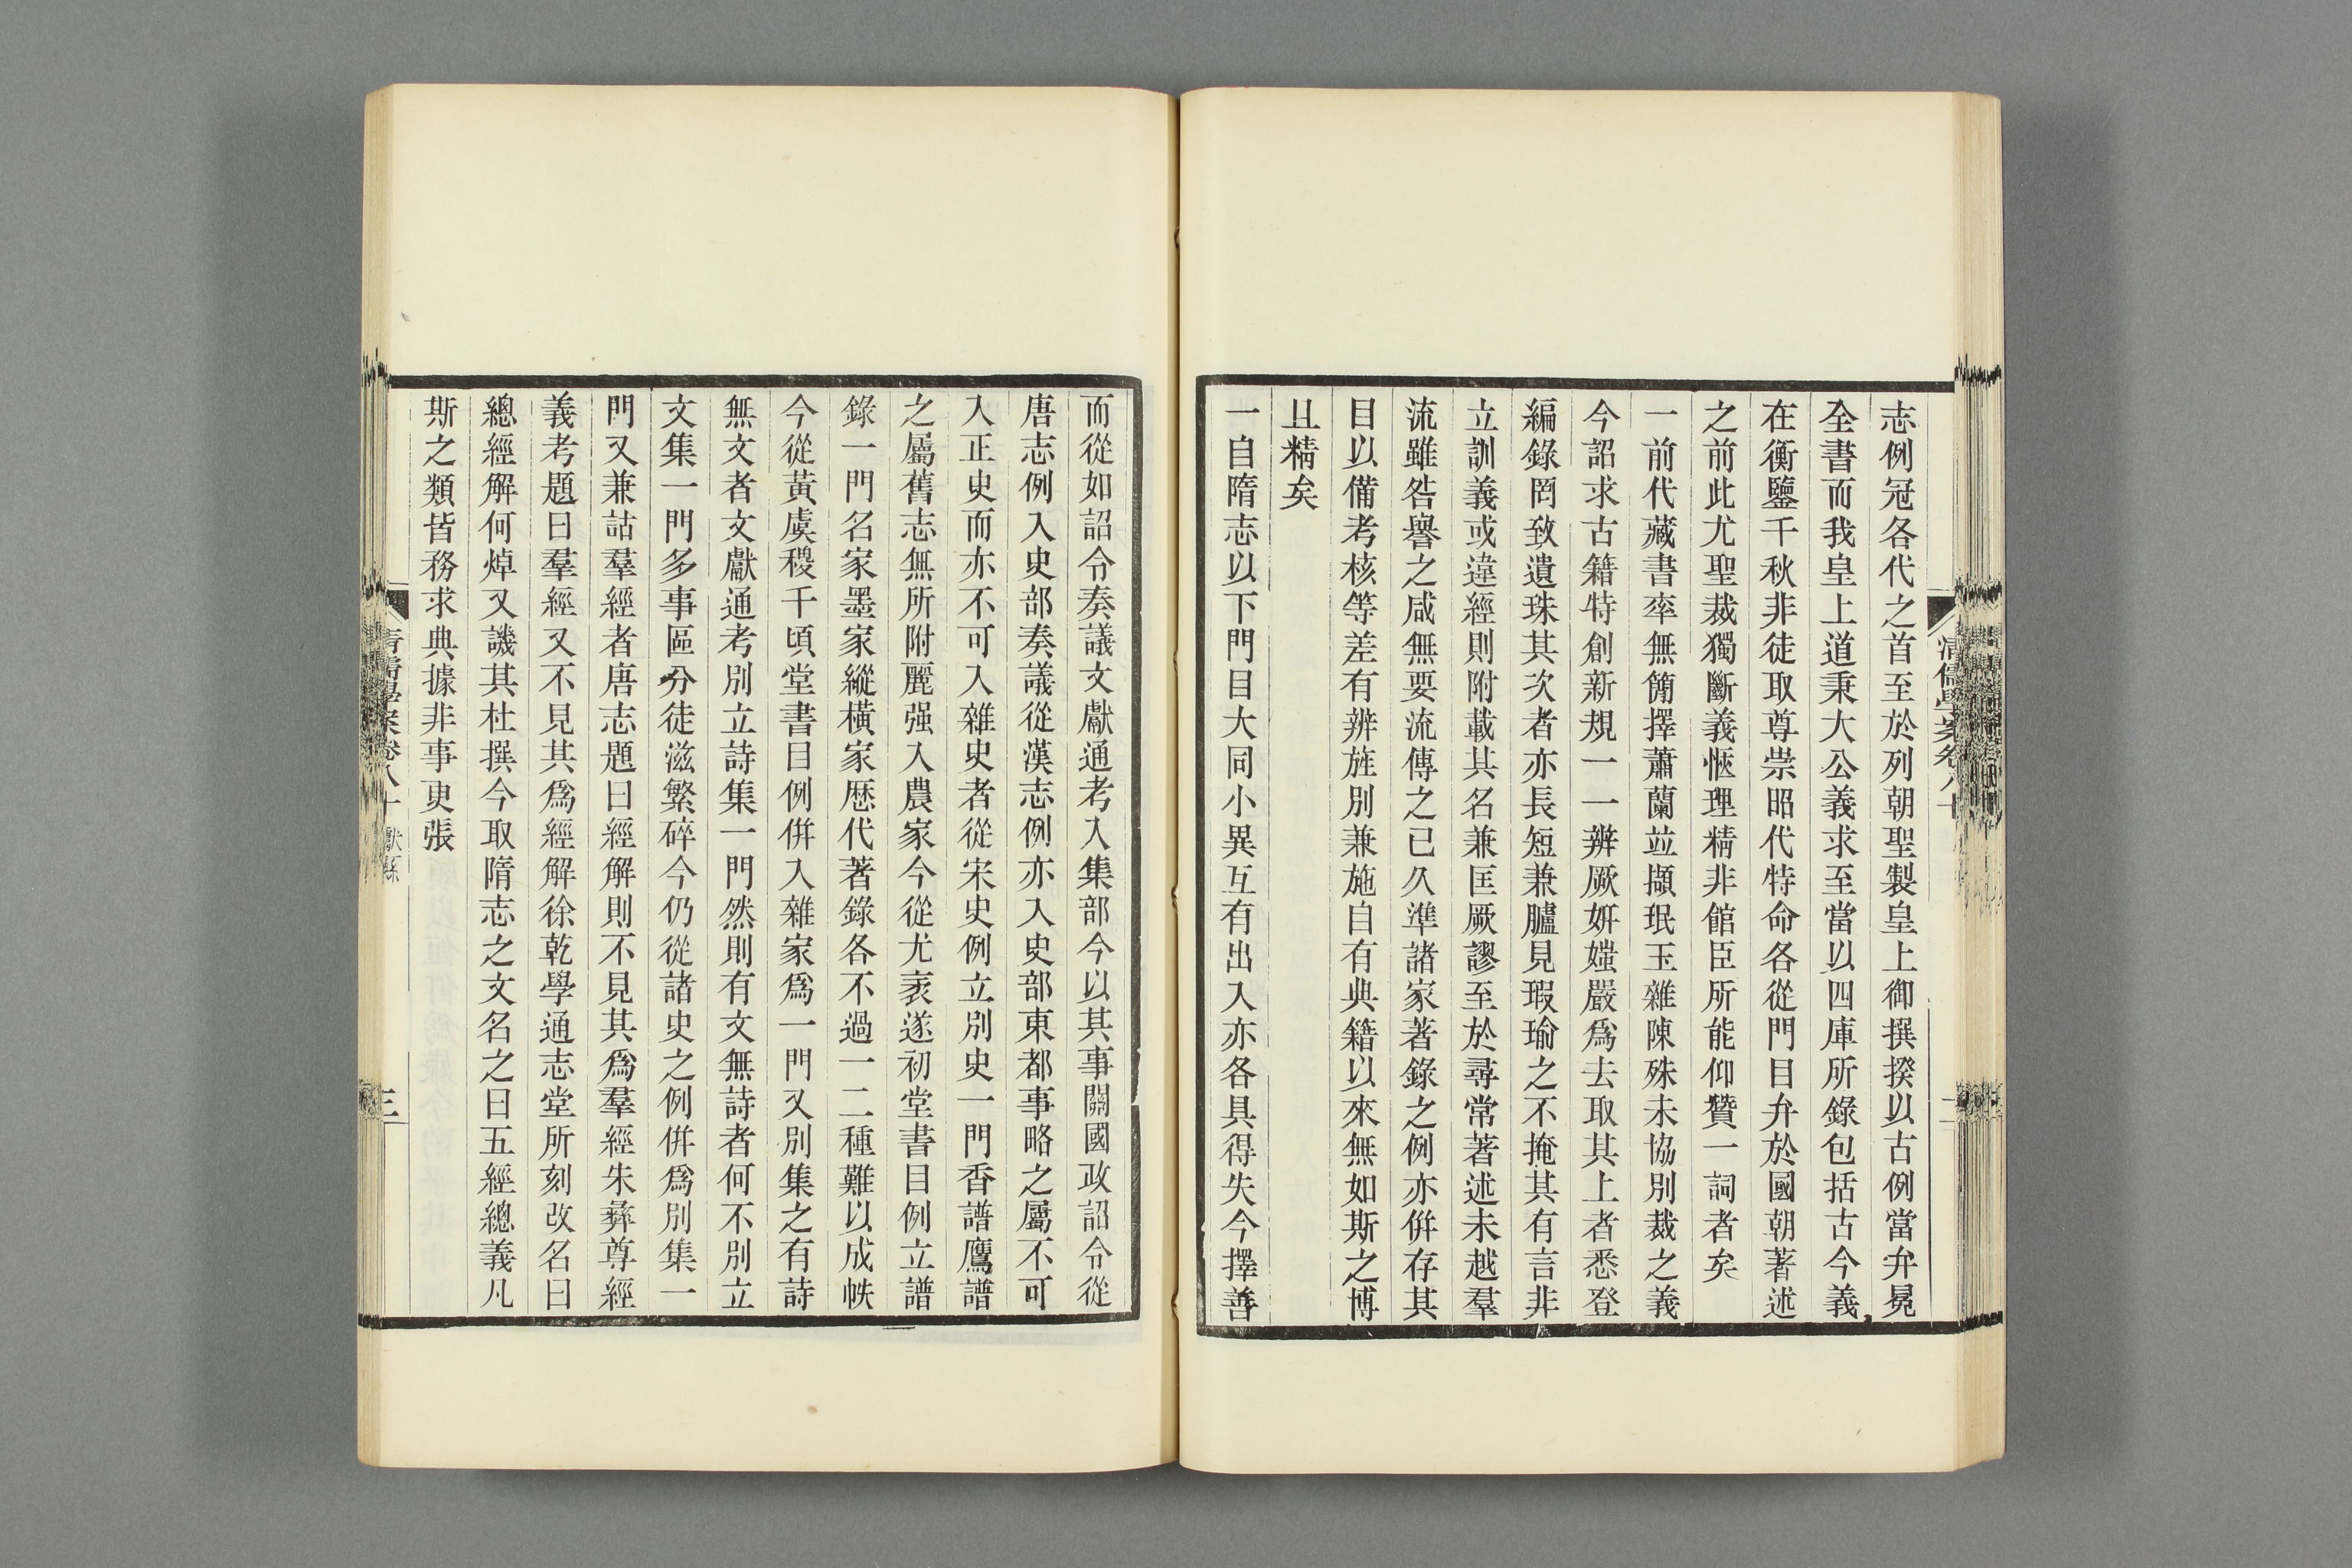 志例冠各代之首至於列朝聖製皇上御撰揆以古例當弁冕
全書而我皇上道秉大公義求至當以四庫所錄包括古今義
在衡鑒千秋非徒取尊崇昭代特命各從門目弁於國朝著述
之前此尤聖裁獨斷義愜理精非館臣所能仰贊一詞者矣
一前代藏書率無簡擇蕭蘭竝擷珉玉雜陳殊未協別裁之義
今詔求古籍特創新規一一辨厥妍媸嚴爲去取其上者悉登
編錄罔致遺珠其次者亦長短兼臚見瑕瑜之不掩其有言非
立訓義或違經則附載其名兼匡厥謬至於尋常著述未越羣
流雖咎譽之咸無要流傳之已久準諸家著錄之例亦併存其
目以備考核等差有辨旌別兼施自有典籍以來無如斯之博
且精矣
一自隋志以下門目大同小異互有出入亦各具得失今擇善
清儒學案卷八十
二
而從如詔令奏議文獻通考入集部今以其事關國政詔令從
唐志例入史部奏議從漢志例亦入史部東都事略之屬不可
入正史而亦不可入雜史者從宋史例立別史一門香譜鷹譜
之屬舊志無所附麗强入農家今從尤袤遂初堂書目例立譜
錄一門名家墨家縱橫家歷代著錄各不過一二種難以成帙
今從黃虞稷千頃堂書目例併入雜家爲一門又別集之有詩
無文者文獻通考別立詩集一門然則有文無詩者何不別立
文集一門多事區分徒滋繁碎今仍從諸史之例併爲別集一
門又兼詁羣經者唐志題曰經解則不見其爲羣經朱彝尊經
義考題曰羣經又不見其爲經解徐乾學通志堂所刻改名曰
總經解何焯又譏其杜撰今取隋志之文名之曰五經總義凡
斯之類皆務求典據非事更張
清儒學案卷八十 獻縣
三